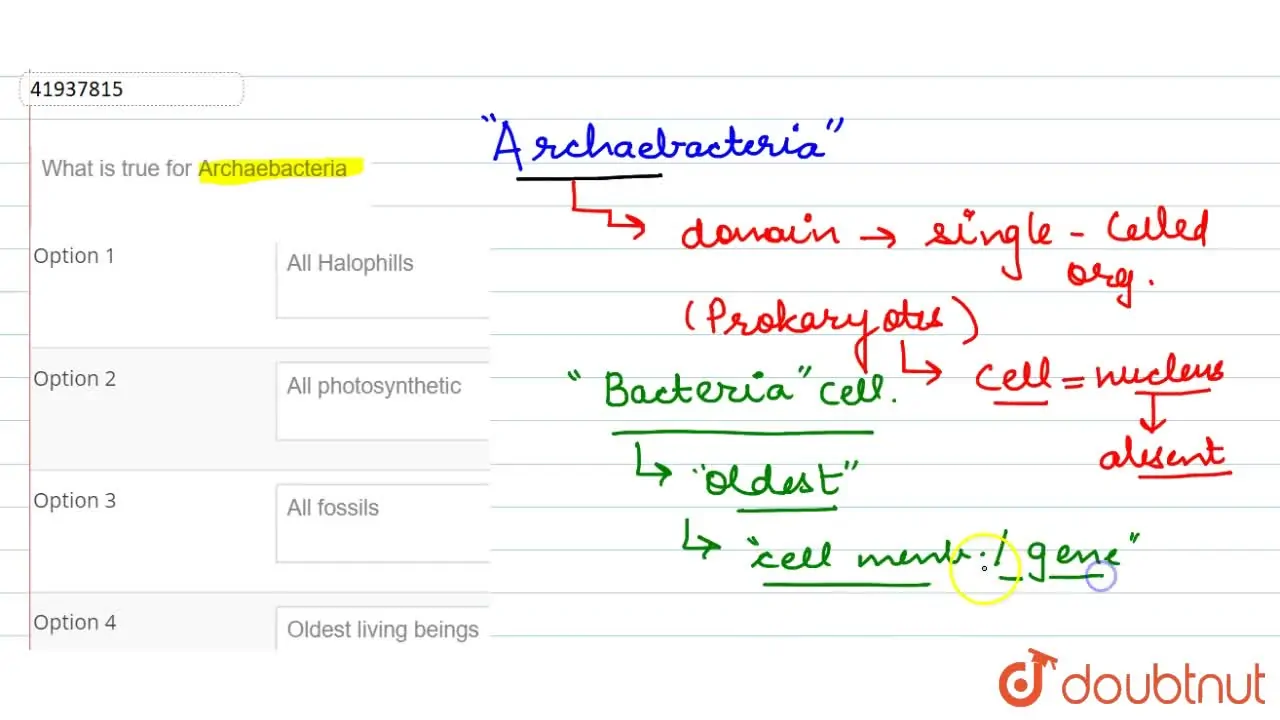 41937815
What is true for Archaebacteria
Option 1
All Halophills
Option 2
All photosynthetic
Option 3
All fossils
Option 4
Oldest living beings
"Archaebacteria"
domain → single - celled
org.
(Prokaryotes)
cell = nucleus
absent
"Bacteria" cell.
"oldest"
"cell memb. / gene"
doubtnut